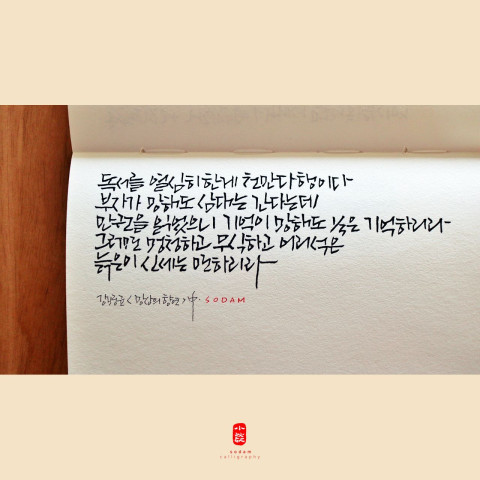 독서를 열심히한게 천만다행이다
부자가 망해도 삼대는 간다는데
만권을 읽었으니 기억이 망해도 1%은 기억하리라
그러면 멍청하고 무식하고 어리석은
늙은이 신세는 면하리라
中. SODAM
sodam
calligraphy